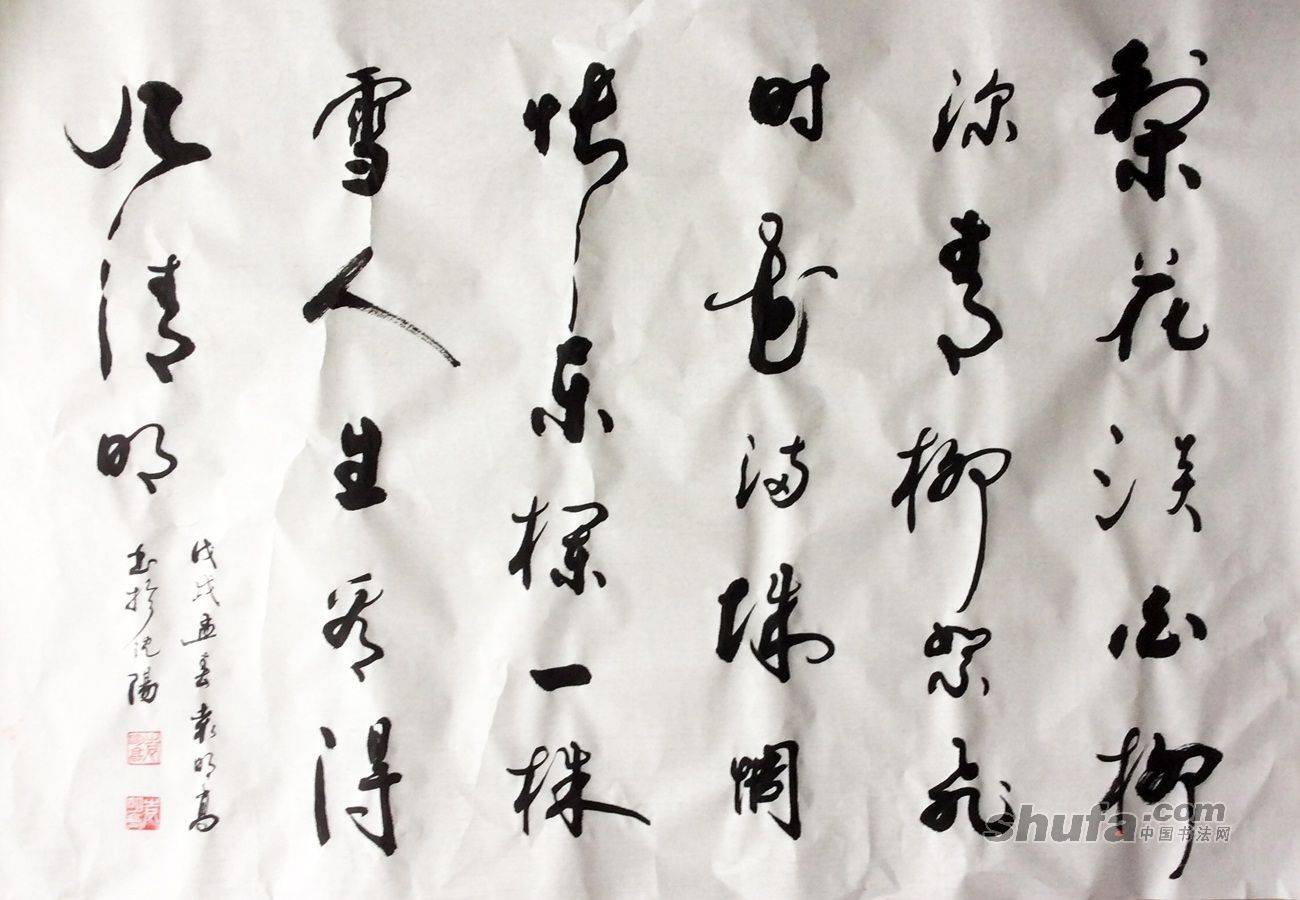 梨花淡白柳
深青柳絮飞
时花满城惆
怅东栏一株
雪人生看得
几清明
戊戌孟春袁明高
书於沈陽
shufa.com
中国书法网